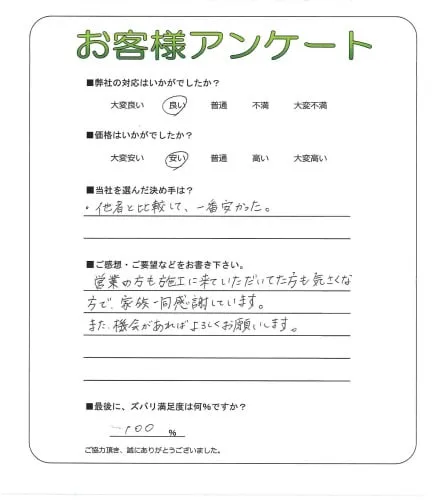 お客様アンケート
■弊社の対応はいかがでしたか?
大変良い 良い 普通 不満 大変不満
■価格はいかがでしたか?
大変安い 安い 普通 高い 大変高い
■当社を選んだ決め手は?
・他者と比較して、一番安かった。
■ご感想・ご要望などをお書き下さい。
営業の方も施工に来ていただいてた方も気さくな
方で、家族一同感謝しています。
また、機会があればよろしくお願いします。
■最後に、ズバリ満足度は何%ですか?
100 %
ご協力頂き、誠にありがとうございました。